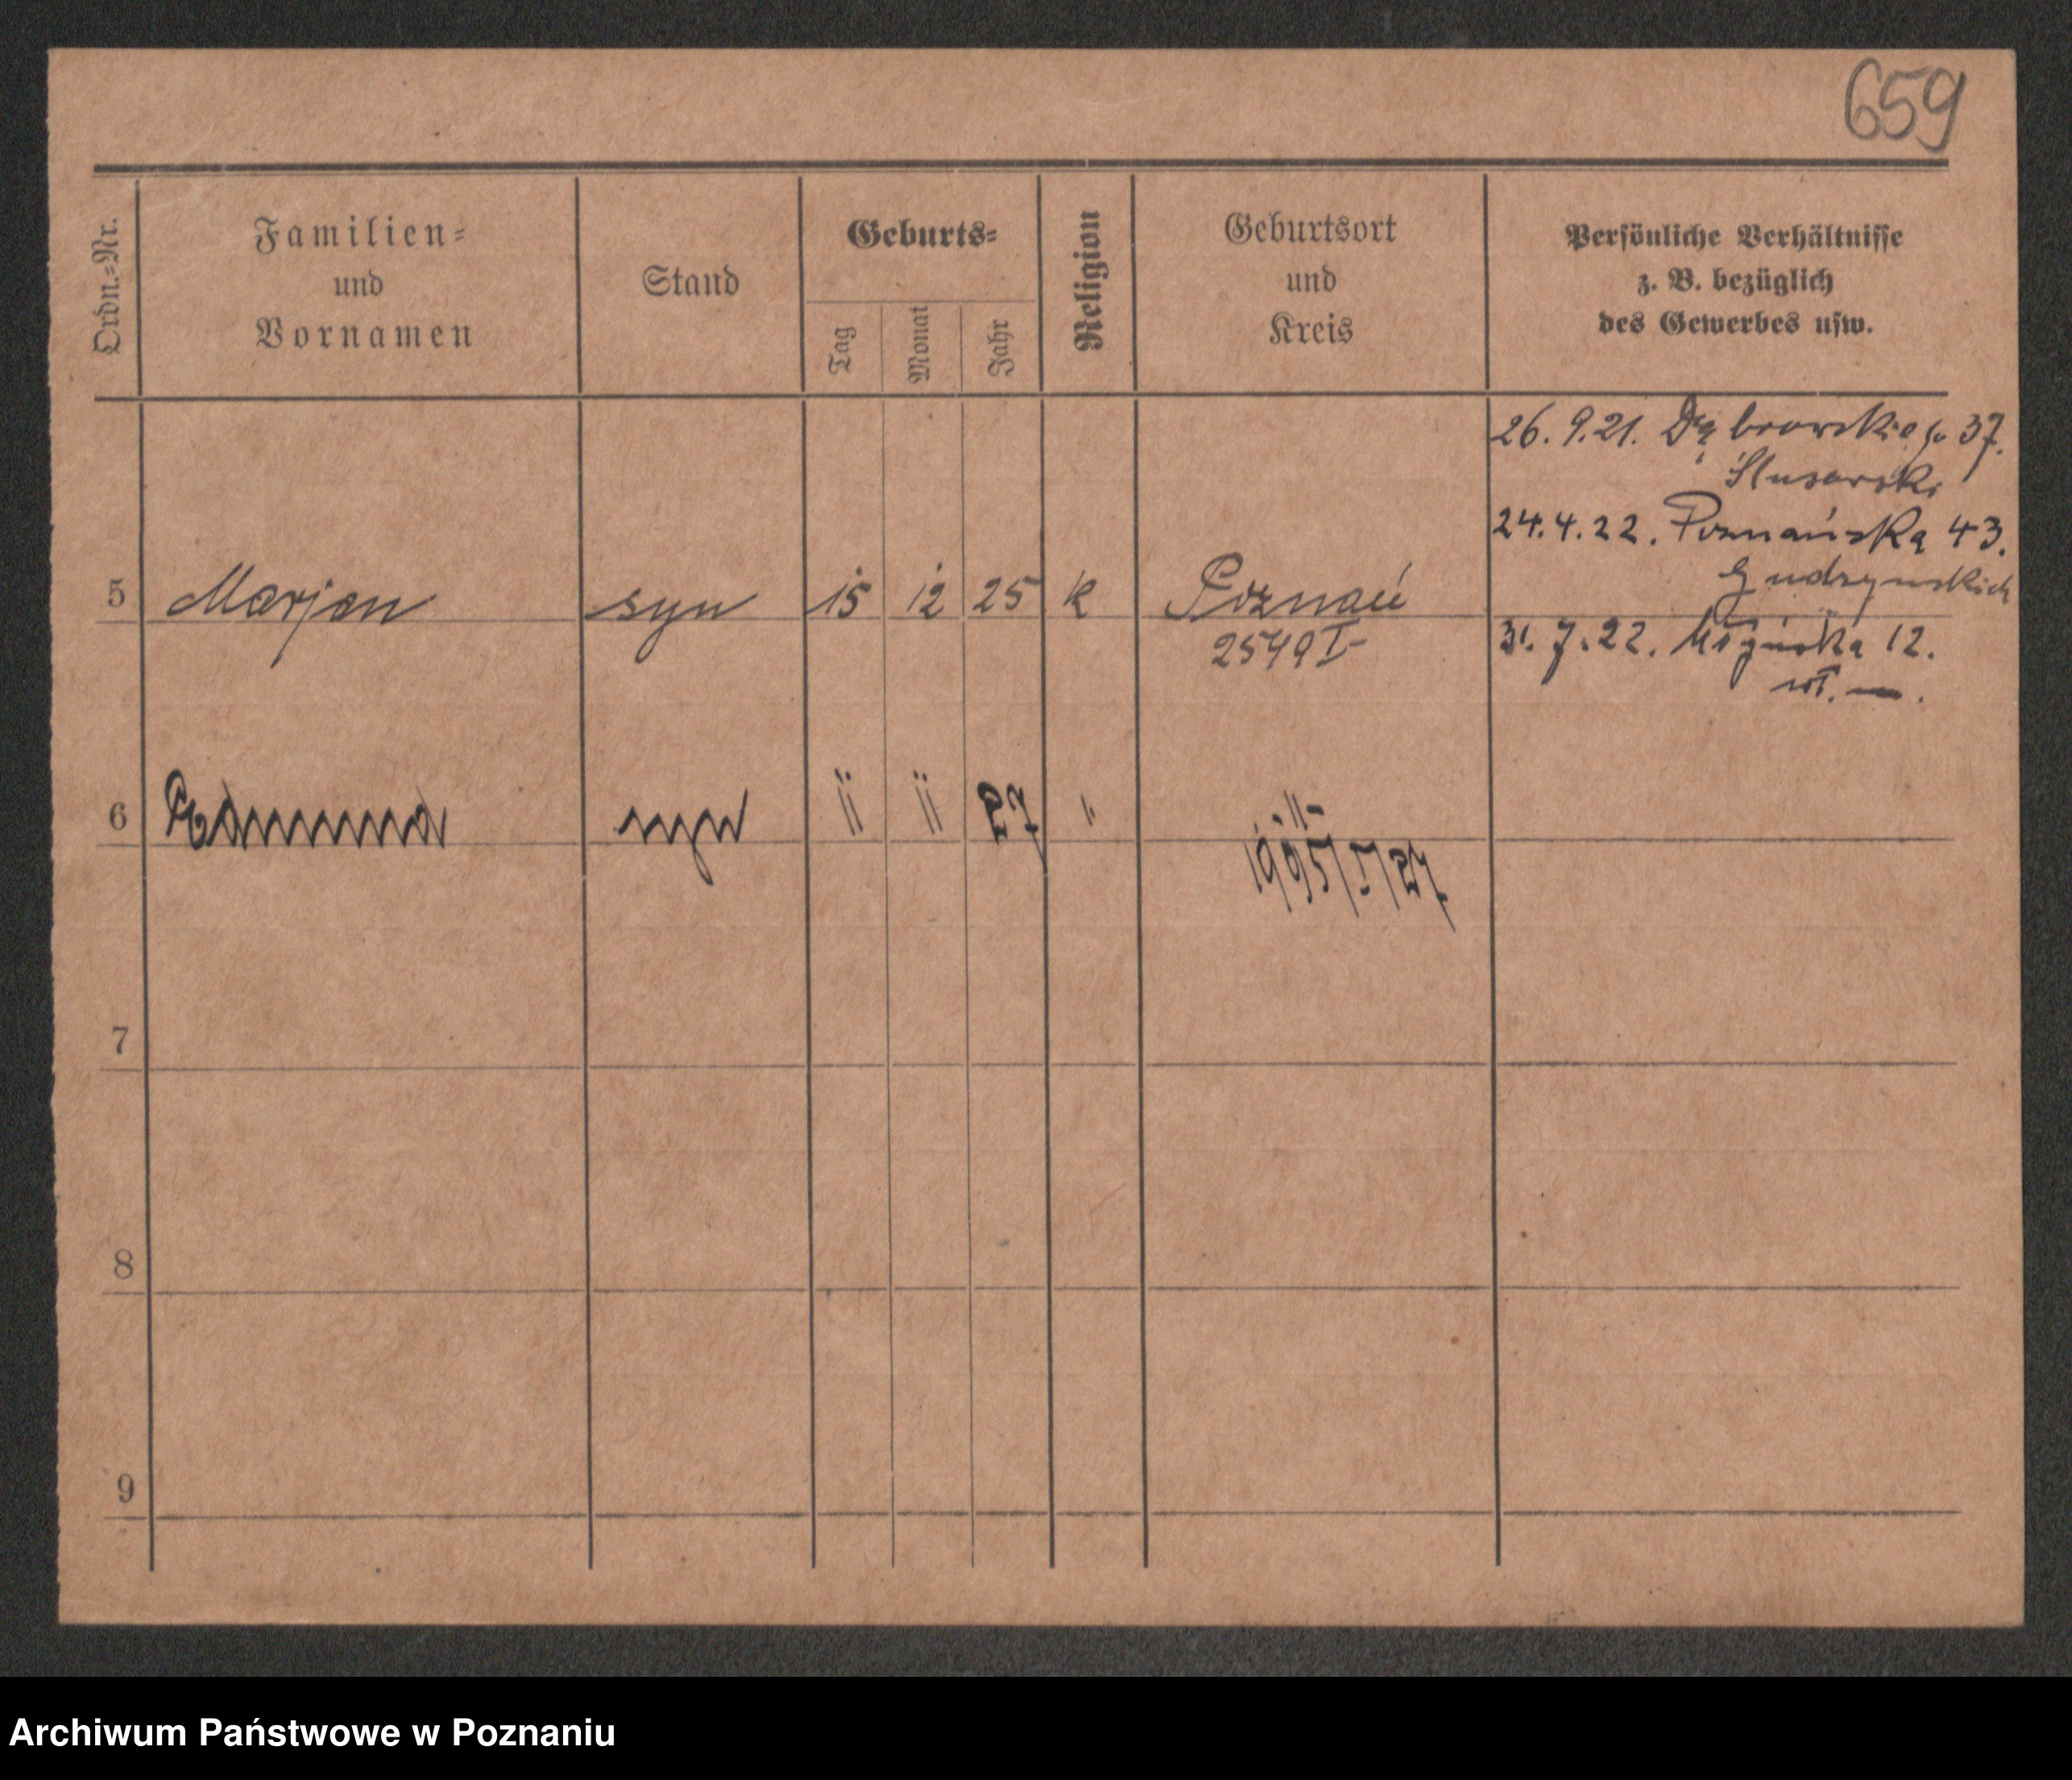 659
Ordn.=Nr.
Familien=
und
Vornamen
Stand
Geburts=
Tag
Monat
Jahr
Religion
Geburtsort
und
Kreis
Persönliche Verhältnisse
z. B. bezüglich
des Gewerbes usw.
26. 9. 21. Dąbrowskiego 37.
Ślusarski
24. 4. 22. Poznańska 43.
5 Marjan syn 15 12 25 k Poznań
2549 I
31. 7. 22. 12.
wł. — .
6 Edmund syn 11 11 27 " "
1995/I/27
7
8
9
Archiwum Państwowe w Poznaniu